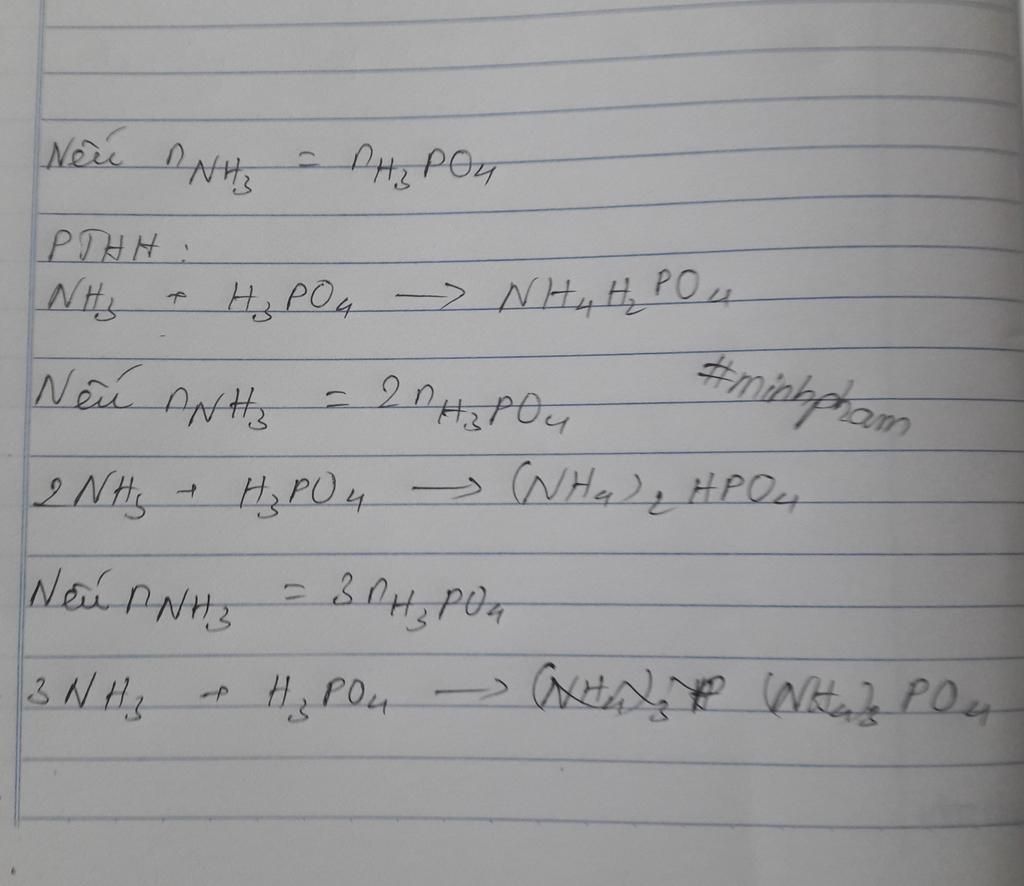 Nếu nNH3 = nH3PO4
PTHH :
NH3 + H3PO4 → NH4H2PO4
Nếu nNH3 = 2nH3PO4
#minhpham
2NH3 + H3PO4 → (NH4)2HPO4
Nếu nNH3 = 3nH3PO4
3NH3 + H3PO4 → (NH4)3P (NH4)3PO4